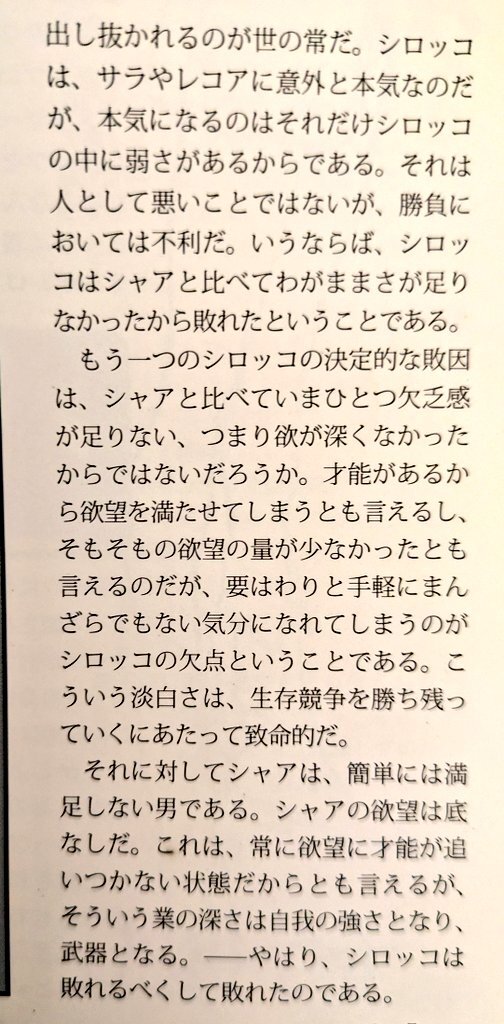 出し抜かれるのが世の常だ。シロッコ
は、サラやレコアに意外と本気なのだ
が、本気になるのはそれだけシロッコ
の中に弱さがあるからである。それは
人として悪いことではないが、勝負に
おいては不利だ。いうならば、シロッ
コはシャアと比べてわがままさが足り
なかったから敗れたということである。
もう一つのシロッコの決定的な敗因
は、シャアと比べていまひとつ欠乏感
が足りない、つまり欲が深くなかった
からではないだろうか。才能があるか
ら欲望を満たせてしまうとも言えるし、
そもそもの欲望の量が少なかったとも
言えるのだが、要はわりと手軽にまん
ざらでもない気分になれてしまうのが
シロッコの欠点ということである。こ
ういう淡白さは、生存競争を勝ち残っ
ていくにあたって致命的だ。
それに対してシャアは、簡単には満
足しない男である。シャアの欲望は底
なしだ。これは、常に欲望に才能が追
いつかない状態だからとも言えるが、
そういう業の深さは自我の強さとなり、
武器となる。──やはり、シロッコは
敗れるべくして敗れたのである。